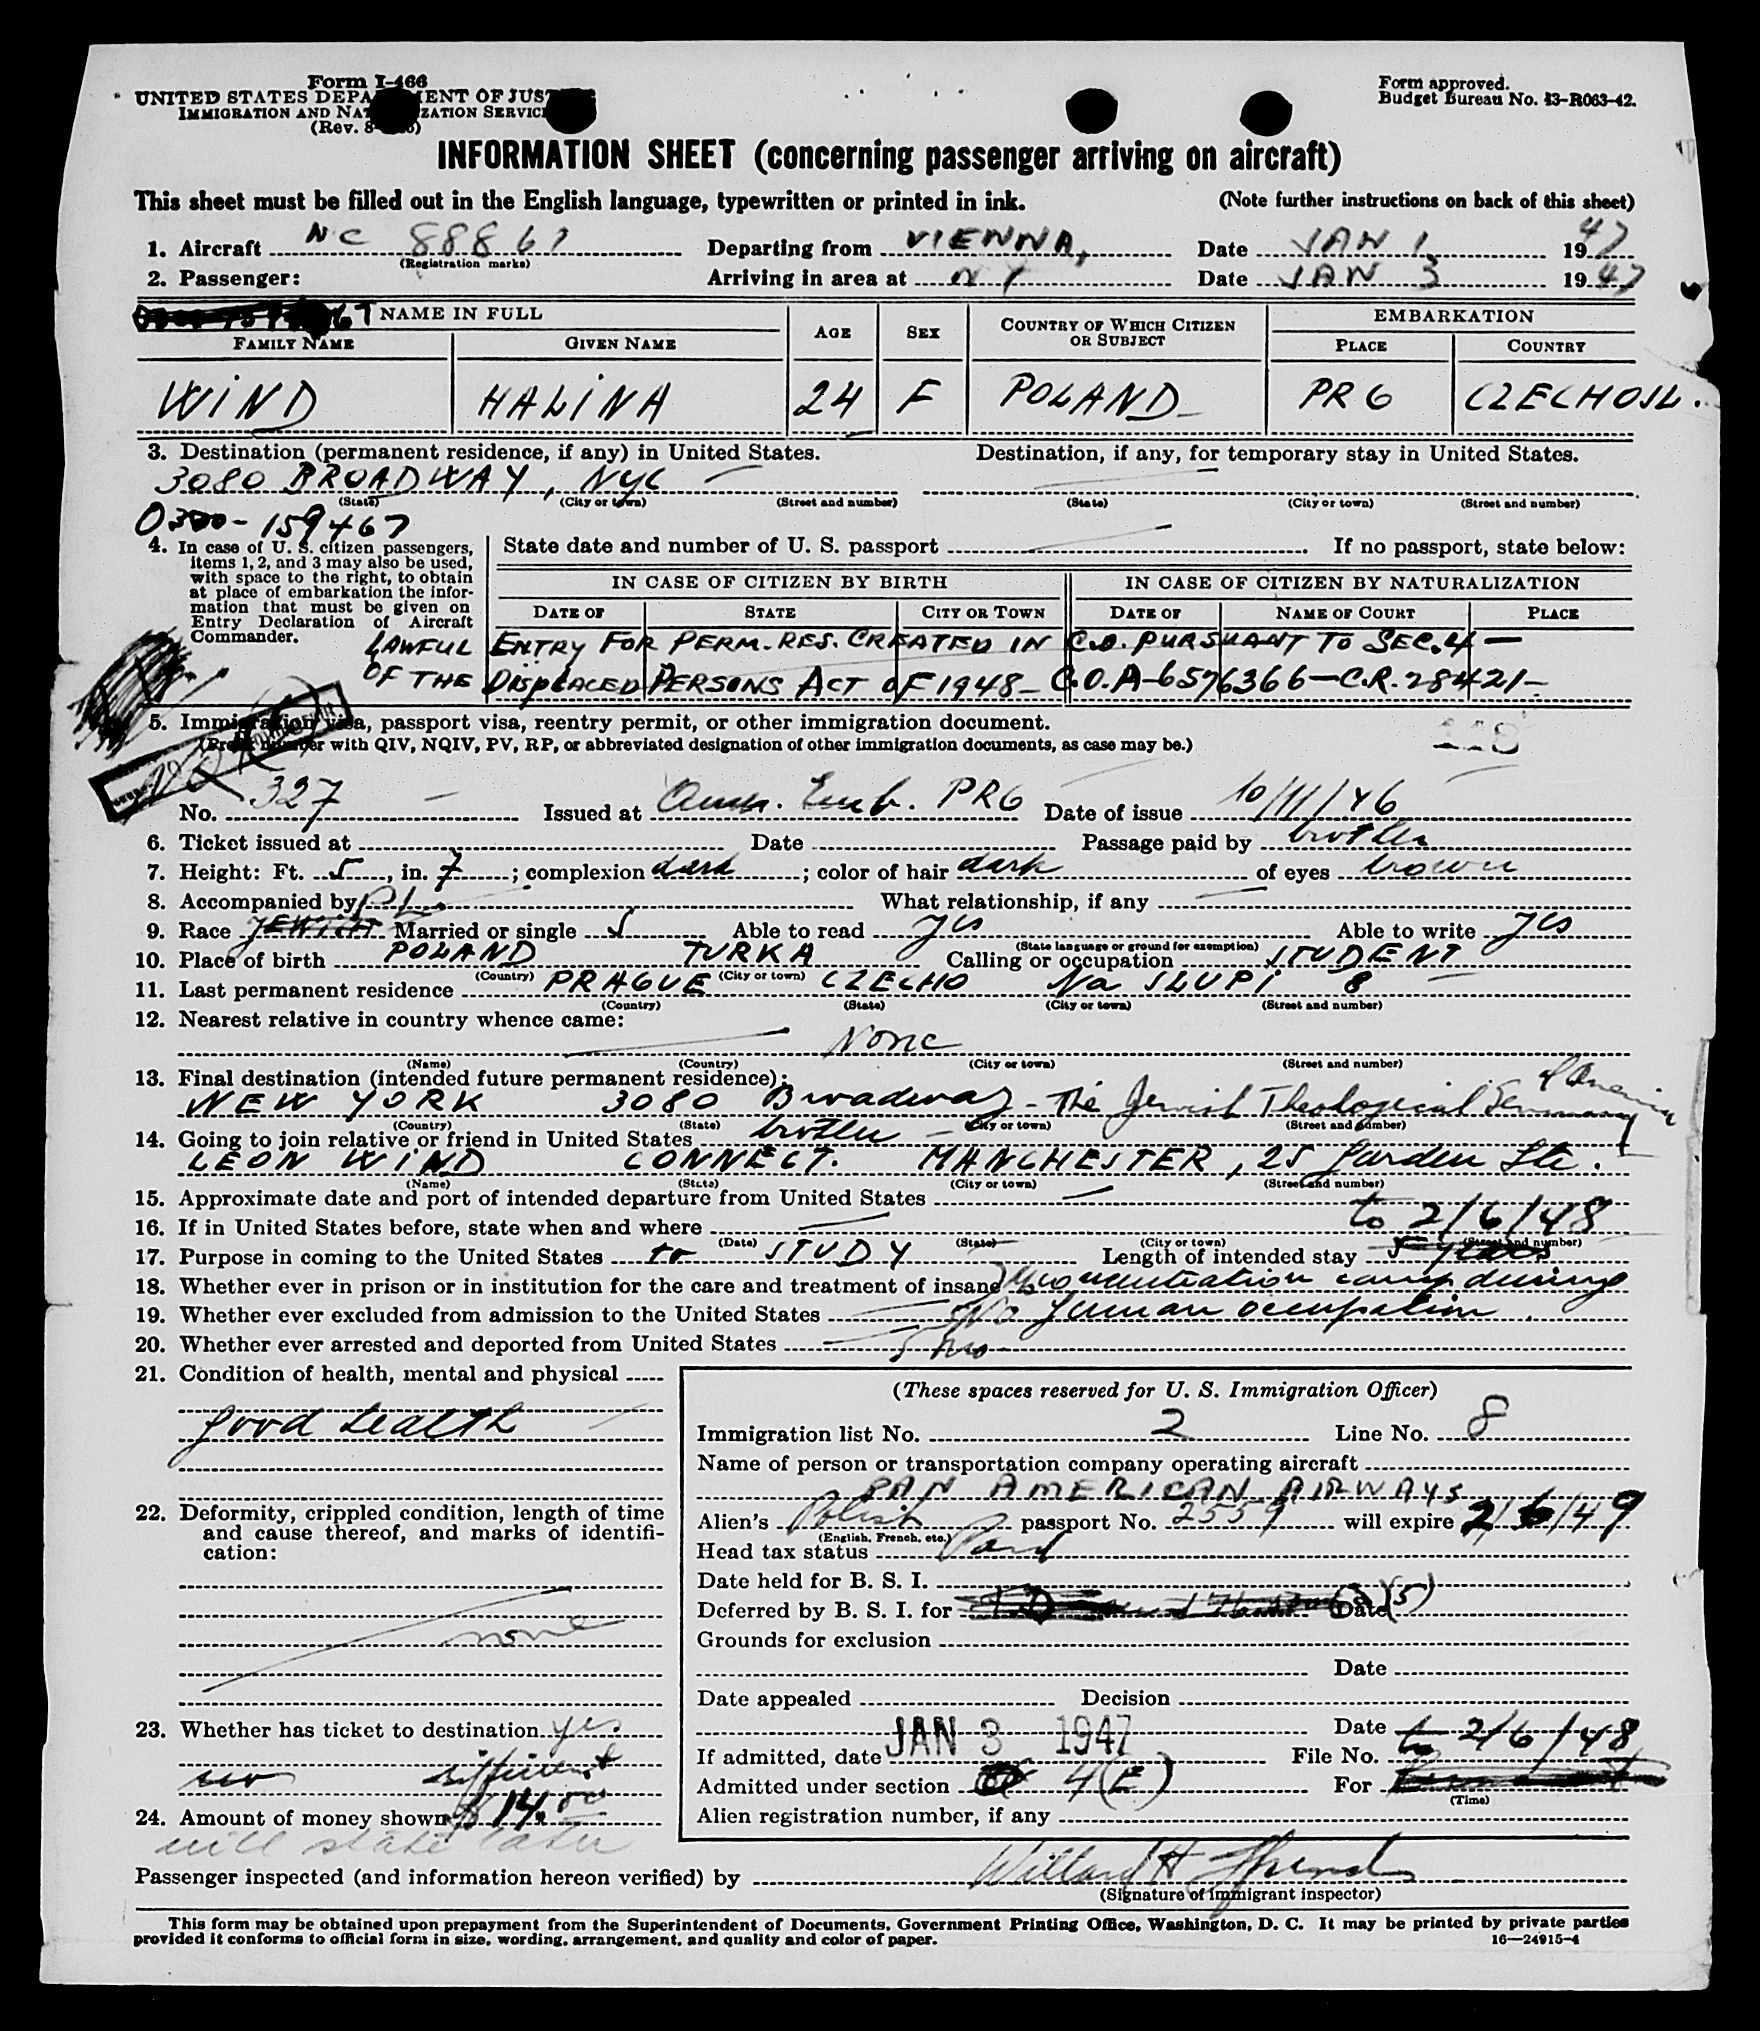 Form I-466
UNITED STATES DEPA ENT OF JUST
IMMIGRATION AND NAT ZATION SERVICE
(Rev. 8- )
Form approved.
Budget Bureau No. 43-R063-42.
INFORMATION SHEET (concerning passenger arriving on aircraft)
This sheet must be filled out in the English language, typewritten or printed in ink. (Note further instructions on back of this sheet)
1. Aircraft NC 88861 Departing from VIENNA, Date JAN 1 1947
(Registration marks)
2. Passenger: Arriving in area at NY Date JAN 3 1947
67 NAME IN FULL AGE SEX COUNTRY OF WHICH CITIZEN OR SUBJECT EMBARKATION
FAMILY NAME GIVEN NAME PLACE COUNTRY
WIND HALINA 24 F POLAND PRG CZECHOSL.
3. Destination (permanent residence, if any) in United States. Destination, if any, for temporary stay in United States.
3080 BROADWAY, NYC
(State) (City or town) (Street and number) (State) (City or town) (Street and number)
0300-159467
4. In case of U. S. citizen passengers, items 1, 2, and 3 may also be used, with space to the right, to obtain at place of embarkation the information that must be given on Entry Declaration of Aircraft Commander.
State date and number of U. S. passport If no passport, state below:
IN CASE OF CITIZEN BY BIRTH IN CASE OF CITIZEN BY NATURALIZATION
DATE OF STATE CITY OR TOWN DATE OF NAME OF COURT PLACE
LAWFUL ENTRY FOR PERM. RES. CREATED IN C.O. PURSUANT TO SEC. 4 —
OF THE DISPLACED PERSONS ACT OF 1948 — C.O. A-6576366 — C.R. 28421 —
5. Immigration visa, passport visa, reentry permit, or other immigration document.
(Prefix number with QIV, NQIV, PV, RP, or abbreviated designation of other immigration documents, as case may be.)
118
No. 327 Issued at Amer. Emb. PRG Date of issue 10/11/46
6. Ticket issued at Date Passage paid by brother
7. Height: Ft. 5, in. 7; complexion dark; color of hair dark of eyes brown
8. Accompanied by What relationship, if any
9. Race JEWISH Married or single S Able to read yes Able to write yes
(State language or ground for exemption)
10. Place of birth POLAND TURKA Calling or occupation STUDENT
(Country) (City or town)
11. Last permanent residence PRAGUE CZECHO Na SLUPI 8
(Country) (State) (City or town) (Street and number)
12. Nearest relative in country whence came:
None
(Name) (Country) (City or town) (Street and number)
13. Final destination (intended future permanent residence):
NEW YORK 3080 Broadway - The Jewish Theological Seminary
(Country) (State) (City or town) (Street and number)
14. Going to join relative or friend in United States brother
LEON WIND CONNECT. MANCHESTER, 25 Garden Str.
(Name) (State) (City or town) (Street and number)
15. Approximate date and port of intended departure from United States
16. If in United States before, state when and where to 2/6/48
(Date) (State) (City or town) (Street and number)
17. Purpose in coming to the United States to STUDY Length of intended stay 5 years
18. Whether ever in prison or in institution for the care and treatment of insane concentration camp during
19. Whether ever excluded from admission to the United States No german occupation.
20. Whether ever arrested and deported from United States no
21. Condition of health, mental and physical
good health
22. Deformity, crippled condition, length of time and cause thereof, and marks of identification:
none
23. Whether has ticket to destination yes
no sifficient
24. Amount of money shown $ 14.00
will state later
(These spaces reserved for U. S. Immigration Officer)
Immigration list No. 2 Line No. 8
Name of person or transportation company operating aircraft
PAN AMERICAN AIRWAYS
Alien's Polish passport No. 2559 will expire 2/6/49
(English, French, etc.)
Head tax status Paid
Date held for B. S. I.
Deferred by B. S. I. for Date (5)
Grounds for exclusion
Date
Date appealed Decision
Date to 2/6/48
If admitted, date JAN 3 1947 File No.
Admitted under section 4(E) For
(Time)
Alien registration number, if any
Passenger inspected (and information hereon verified) by Willard H
(Signature of immigrant inspector)
This form may be obtained upon prepayment from the Superintendent of Documents, Government Printing Office, Washington, D. C. It may be printed by private parties
provided it conforms to official form in size, wording, arrangement, and quality and color of paper. 16—24915-4